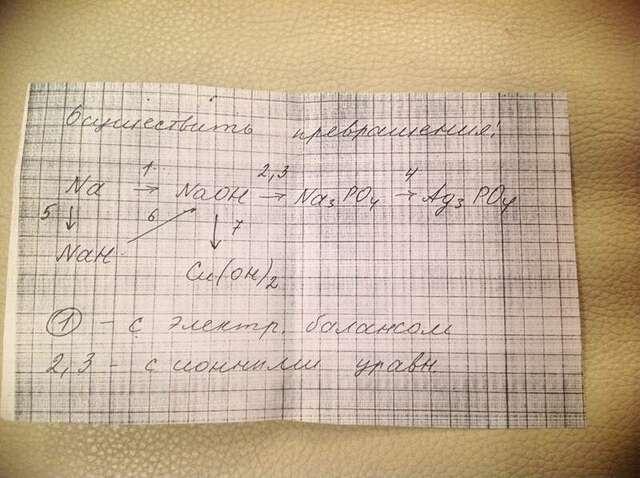 Осуществить превращения:
Na 1→ NaOH 2,3→ Na₃PO₄ 4→ Ag₃PO₄
5↓ 6 ↓7
NaH
Cu(OH)₂
① – с электр. балансом
2,3 – с ионными уравн.